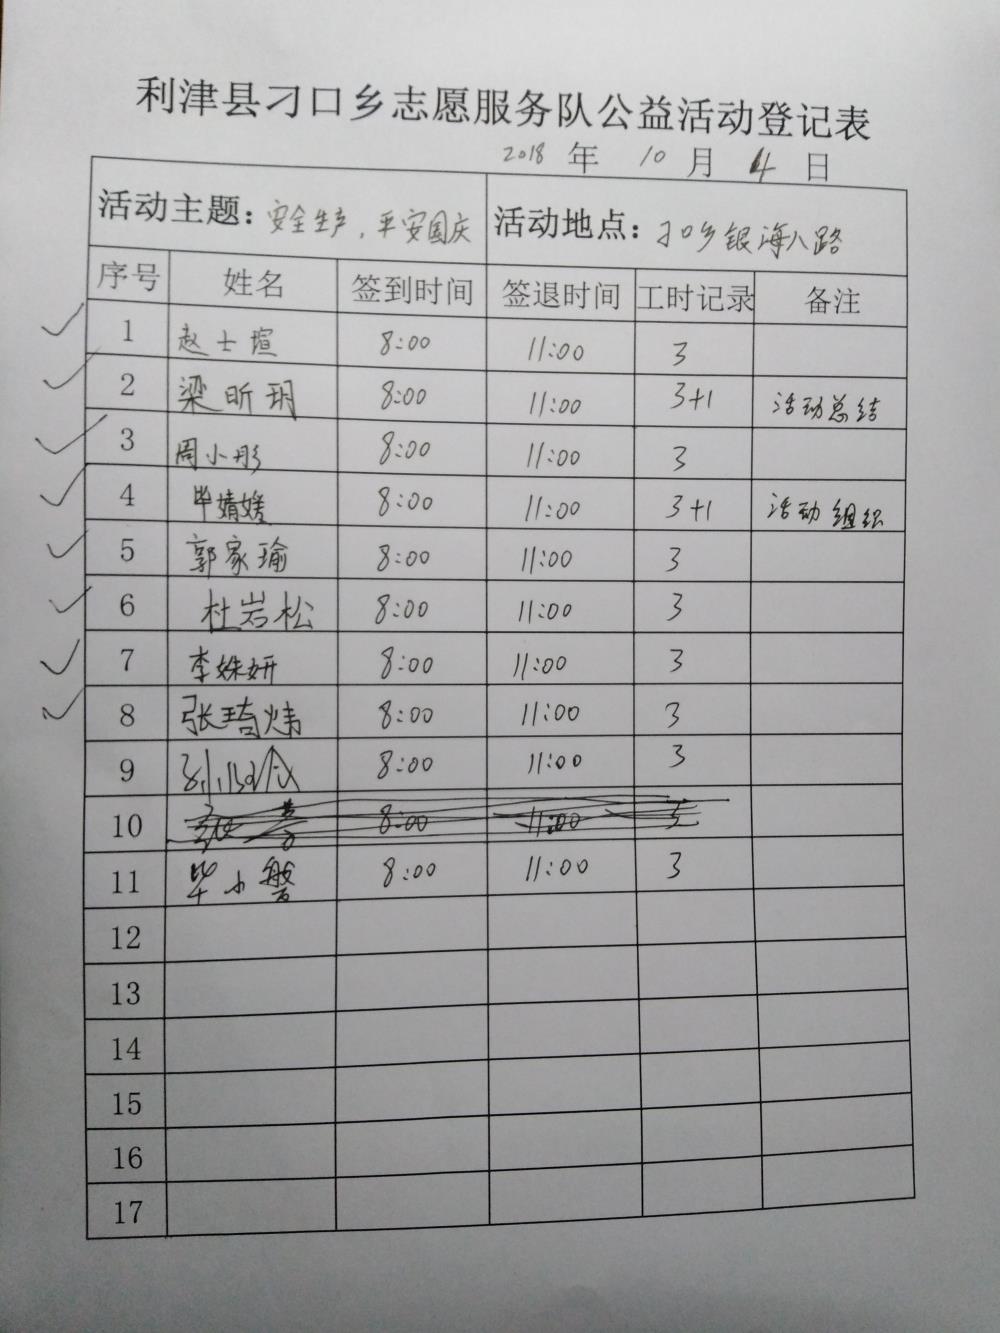 利津县刁口乡志愿服务队公益活动登记表
2018 年 10 月 4 日
活动主题：安全生产，平安国庆 活动地点：刁口乡银海八路
序号 姓名 签到时间 签退时间 工时记录 备注
1 赵士煊 8:00 11:00 3
2 梁昕玥 8:00 11:00 3+1 活动总结
3 周小彤 8:00 11:00 3
4 毕婧媛 8:00 11:00 3+1 活动组织
5 郭家瑜 8:00 11:00 3
6 杜岩松 8:00 11:00 3
7 李姝妍 8:00 11:00 3
8 张琦炜 8:00 11:00 3
9 8:00 11:00 3
10 8:00 11:00 3
11 毕小 8:00 11:00 3
12
13
14
15
16
17